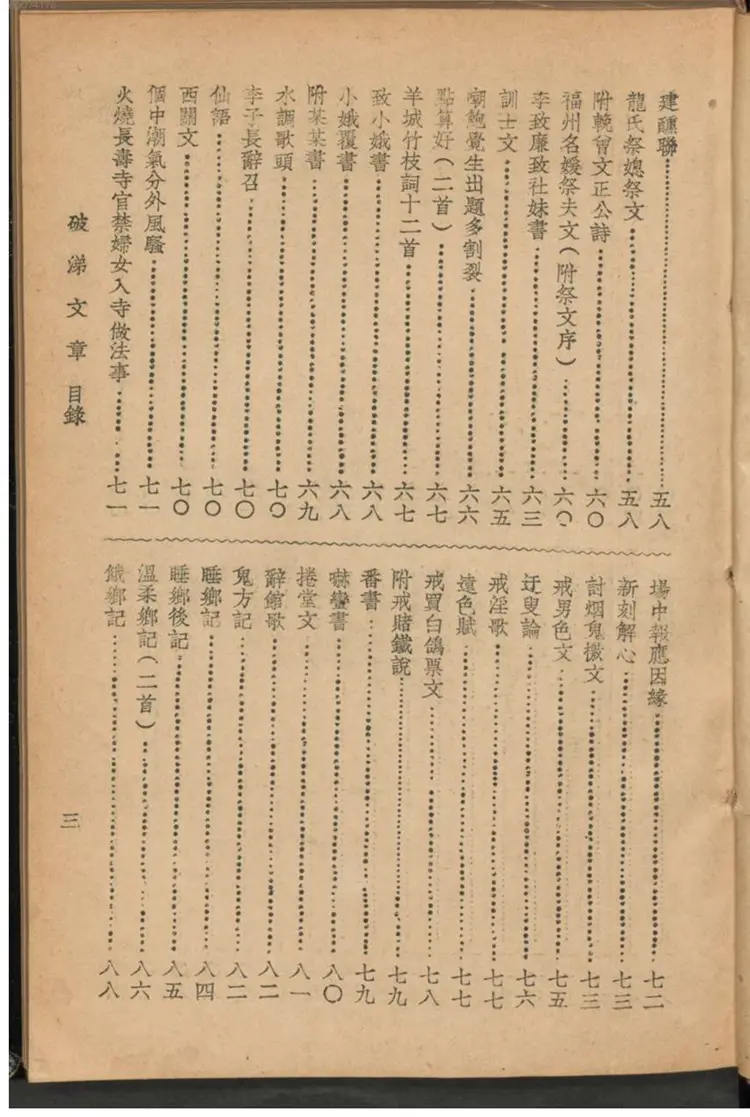 建醮聯 五八
龍氏祭媳祭文 五八
附輓曾文正公詩 六〇
福州名媛祭夫文(附祭文序) 六〇
李致廉致社妹書 六三
訓士文 六五
嘲鮑覺生出題多割裂 六六
點算好(二首) 六七
羊城竹枝詞十二首 六七
致小娥書 六八
小娥覆書 六八
附某某書 六九
水調歌頭 七〇
李子長辭召 七〇
仙語 七〇
西關文 七〇
個中潮氣分外風騷 七一
火燒長壽寺官禁婦女入寺做法事 七一
場中報應因緣 七二
新刻解心 七三
討烟鬼檄文 七三
戒男色文 七五
迂叟論 七六
戒淫歌 七七
遠色賦 七七
戒買白鴿票文 七八
附戒賭鐵說 七九
番書 七九
嚇蠻書 八〇
捲堂文 八一
辭館歌 八二
鬼方記 八二
睡鄉記 八四
睡鄉後記 八五
溫柔鄉記(二首) 八六
餓鄉記 八八
破涕文章 目錄
三